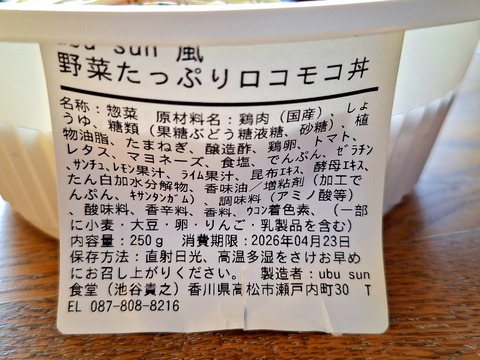 ubu sun 風
野菜たっぷりロコモコ丼
名称：惣菜　原材料名：鶏肉（国産）、しょ
うゆ、糖類（果糖ぶどう糖液糖、砂糖）、植
物油脂、たまねぎ、醸造酢、鶏卵、トマト、
レタス、マヨネーズ、食塩、でんぷん、ゼラチン
、サンチュ、レモン果汁、ライム果汁、昆布エキス、酵母エキス、
たん白加水分解物、香味油／増粘剤（加工で
んぷん、キサンタンガム）、調味料（アミノ酸等）
、酸味料、香辛料、香料、ウコン着色素、（一部
に小麦・大豆・卵・りんご・乳製品を含む）
内容量：250ｇ　消費期限：2026年04月23日
保存方法：直射日光、高温多湿をさけお早め
にお召し上がりください。　製造者：ubu sun
食堂（池谷貴之）香川県高松市瀬戸内町30　T
EL 087-808-8216